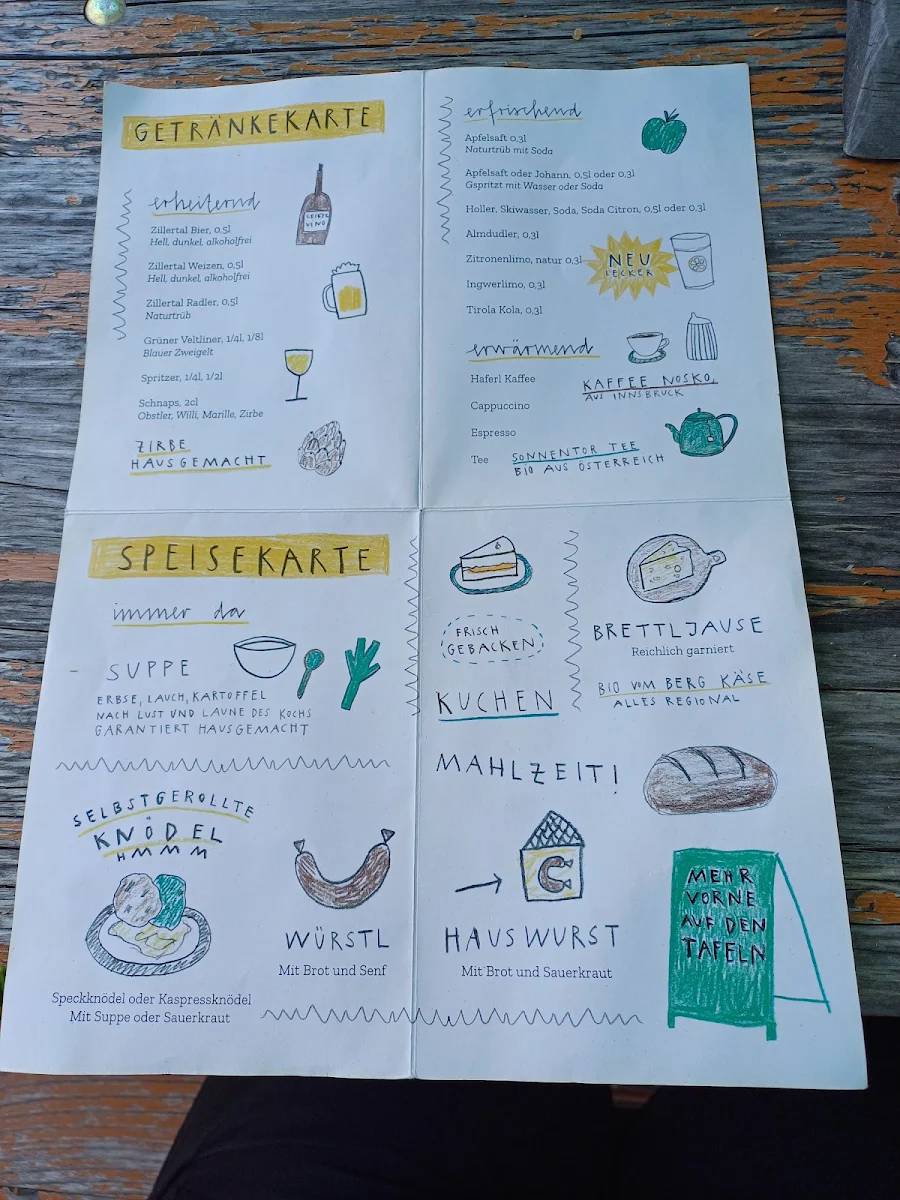 GETRÄNKEKARTE
erheiternd
Zillertal Bier, 0,5l
Hell, dunkel, alkoholfrei
Zillertal Weizen, 0,5l
Hell, dunkel, alkoholfrei
Zillertal Radler, 0,5l
Naturtrüb
Grüner Veltliner, 1/4l, 1/8l
Blauer Zweigelt
Spritzer, 1/4l, 1/2l
Schnaps, 2cl
Obstler, Willi, Marille, Zirbe
ZIRBE
HAUSGEMACHT
VINO
erfrischend
Apfelsaft 0,3l
Naturtrüb mit Soda
Apfelsaft oder Johann, 0,5l oder 0,3l
Gspritzt mit Wasser oder Soda
Holler, Skiwasser, Soda, Soda Citron, 0,5l oder 0,3l
Almdudler, 0,3l
Zitronenlimo, natur 0,3l
Ingwerlimo, 0,3l
Tirola Kola, 0,3l
NEU
LECKER
erwärmend
Haferl Kaffee
Cappuccino
Espresso
Tee
KAFFEE NOSKO,
AUS INNSBRUCK
SONNENTOR TEE
BIO AUS ÖSTERREICH
SPEISEKARTE
immer da
SUPPE
ERBSE, LAUCH, KARTOFFEL
NACH LUST UND LAUNE DES KOCHS
GARANTIERT HAUSGEMACHT
SELBSTGEROLLTE
KNÖDEL
HMMM
Speckknödel oder Kaspressknödel
Mit Suppe oder Sauerkraut
WÜRSTL
Mit Brot und Senf
FRISCH
GEBACKEN
KUCHEN
BRETTLJAUSE
Reichlich garniert
BIO VOM BERG KÄSE
ALLES REGIONAL
MAHLZEIT!
HAUSWURST
Mit Brot und Sauerkraut
MEHR
VORNE
AUF DEN
TAFELN